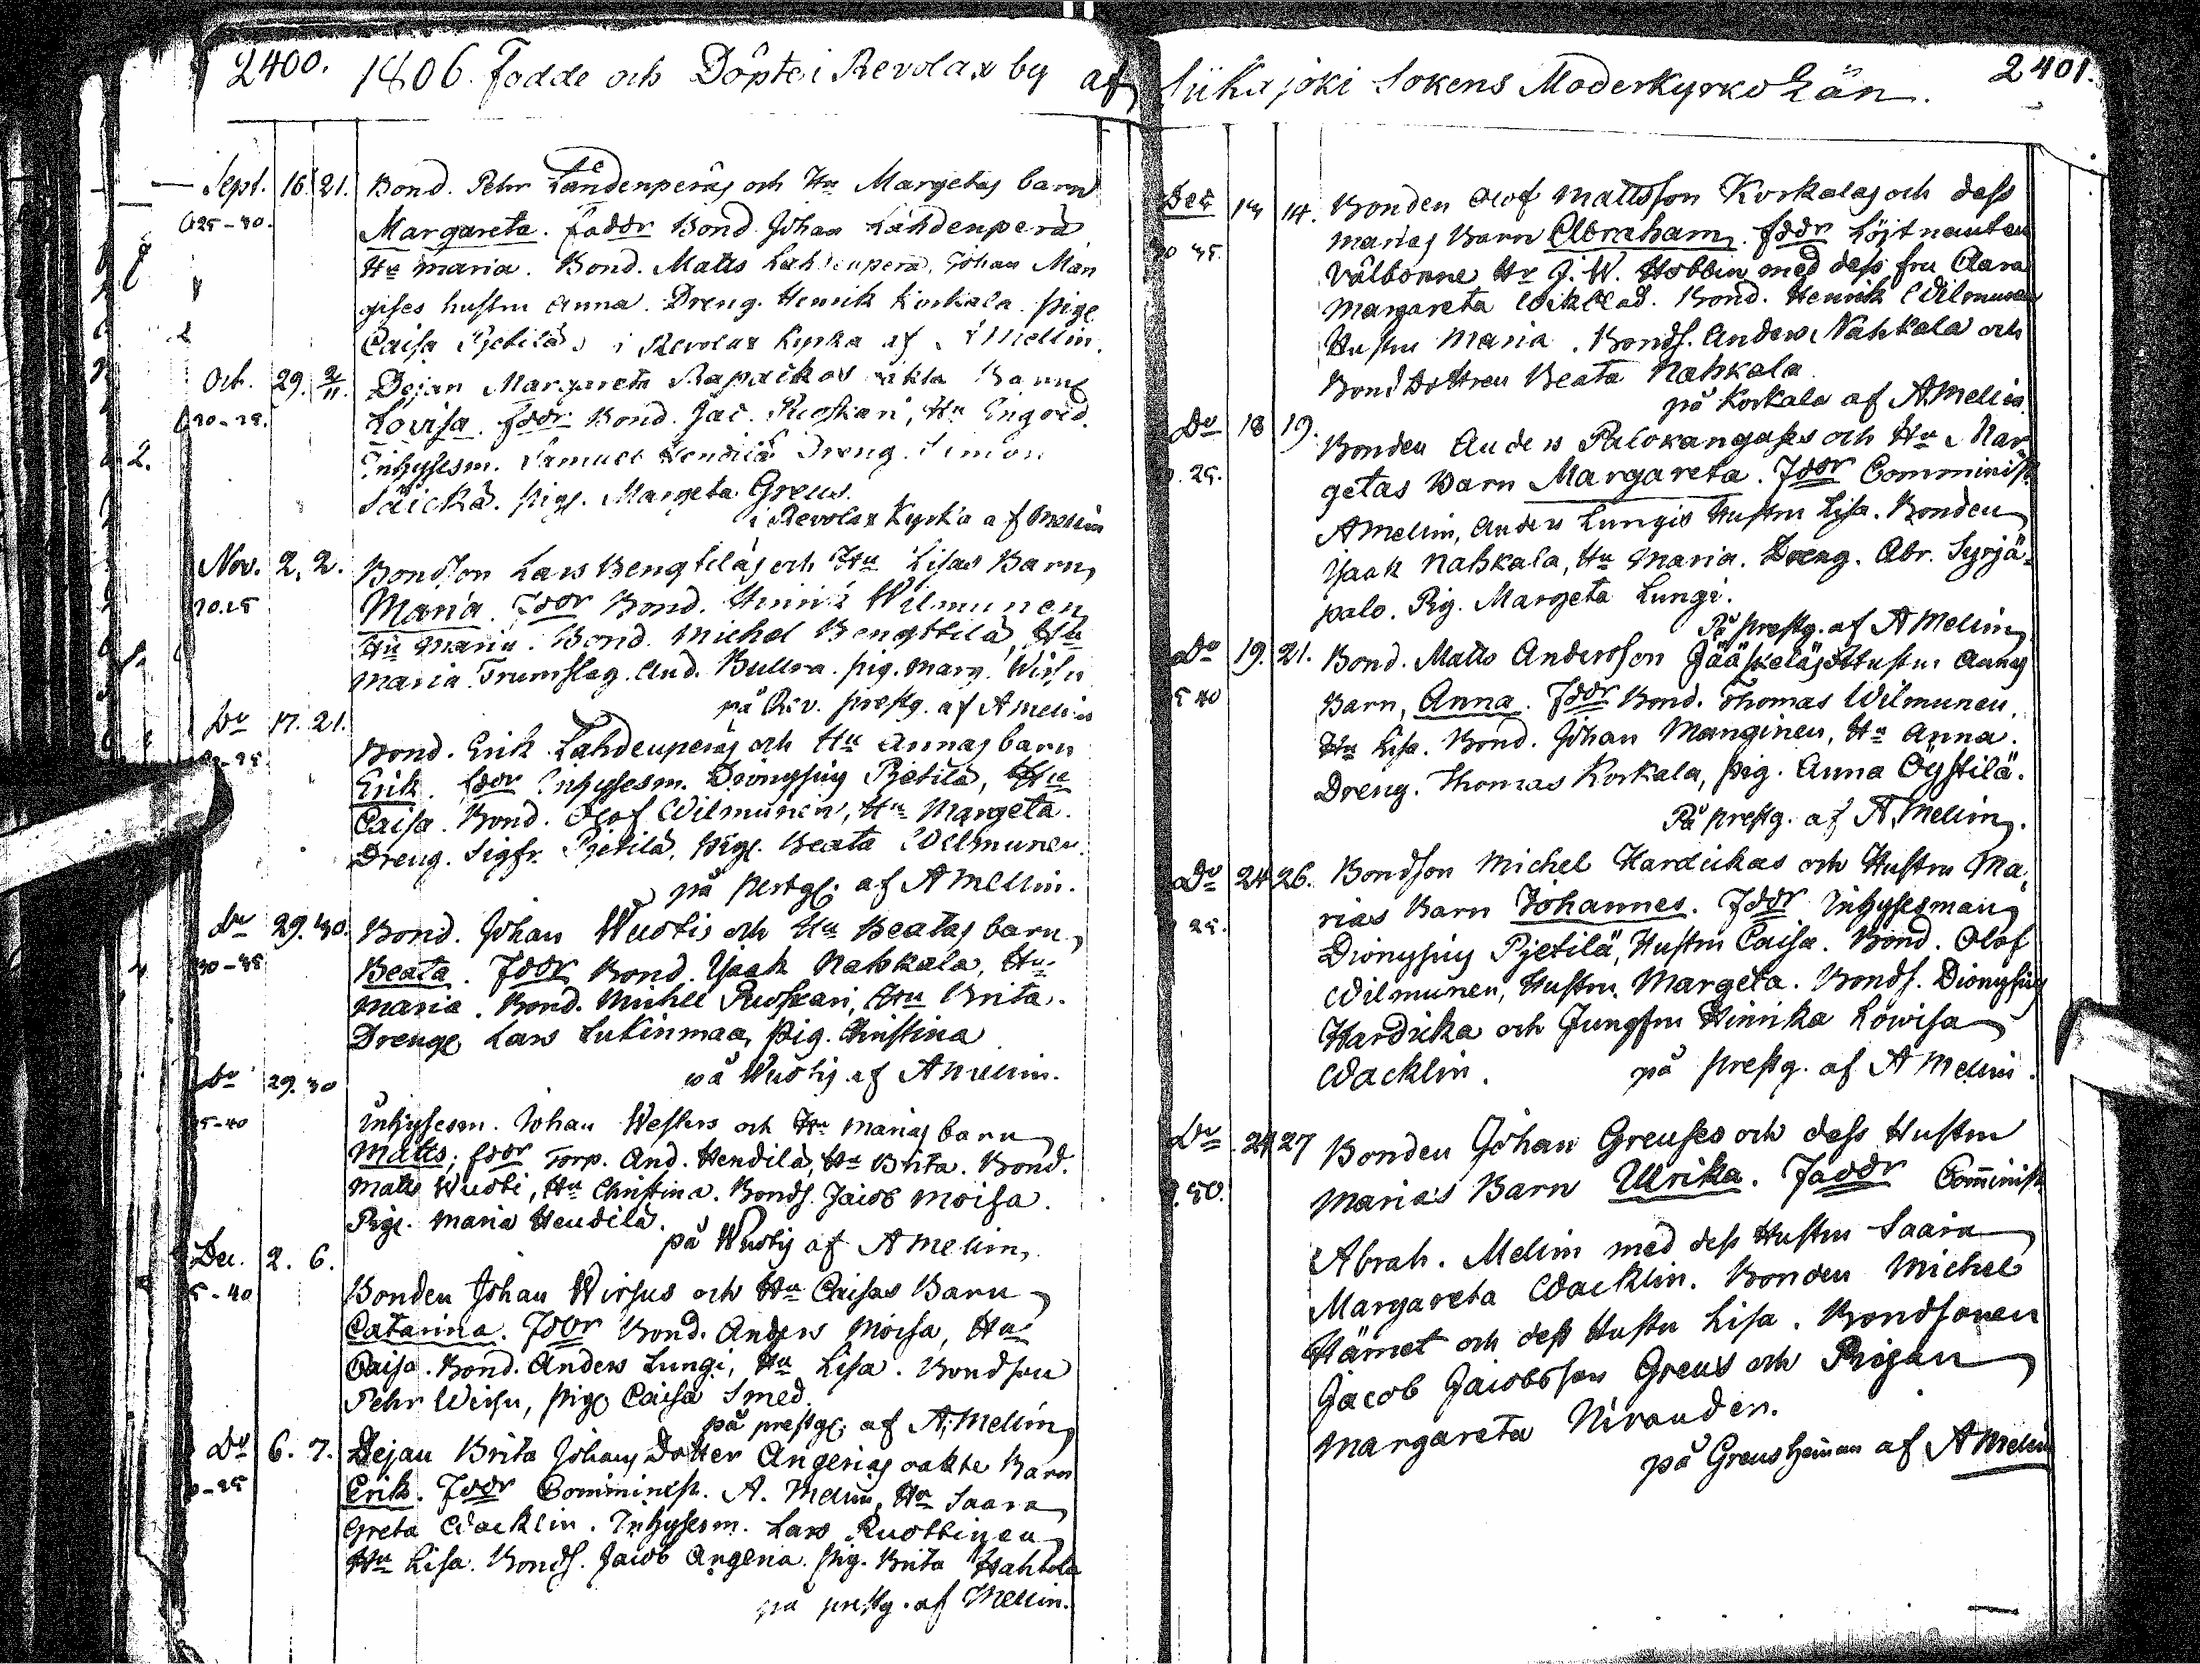 2400. 1806. Fodde och Döpte i Revolax by af
Sept. 16. 21. Bond. Pehr Landenperäs och Hu Margetas barn
25-30. Margareta. faddr Bond Johan Lahdenperä
Hu Maria. Bond. Matts Lahdenperä, Johan Man
gises hustru Anna. Dreng. Henrik Korkala. pige
Caisa Pietilä i Revolax kyrka af A Mellin.
Oct. 29. 2/11. Dejan Margareta Rapaikos oäkta Barn
Lovisa. fddr Bond. Jac. Ruoskari, Hu Ingord.
Inhysesm. Samuel Hendilä Dreng. Simon
Säickä. pige. Margeta Greus.
i Revolax Kyrka af Mellin
Nov. 2. 2. Bondson Lars Bengtiläs och Hu Lisas Barn
20.25 Maria. Fddr Bond. Hinric Wilmunen
Hu Maria. Bond. Michel Bengttilä, Hu
Maria Trumslag. And. Bullra. pig. Marg. Wirsu
på Rev. prestg. af A Mellin
Do 17. 21.
Bond. Erik Lahdenperäs och Hu Annas barn
Erik. fddr Inhysesm. Dionysius Pietilä, Hu
Caisa. Bond. Olof Wilmunen, Hu Margeta.
Dreng. Sigfr. Pietilä, pige. Beata Wilmunen.
på prestg. af A Mellin.
do 29. 30. Bond. Johan Wuotis och Hu Beatas barn
30-35 Beata. Fddr Bond. Isaak Nahkala, Hu
Maria. Bond. Michel Ruoskari, Hu Brita.
Dreng. Lars Lukinmaa, pig. Christina
på Wuotis af A Mellin.
do 29. 30
Inhysesm. Johan Westers och Hu Marias barn
35-40 Matts; fddr Torp. And. Hendilä, Hu Brita. Bond.
Matts Wuoti, Hu Christina. Bonds. Jacob Moisa.
Pige. Maria Hendilä.
på Wuotis af A Mellin.
Dec. 2. 6.
Bonden Johan Wirsus och Hu Caisas Barn
5-40 Catarina. Fddr Bond. Anders Moisa, Hu
Caisa. Bond. Anders Lungi, Hu Lisa. Bondson
Pehr Wirsu, pige Caisa Smed.
på prestg. af A. Mellin
Do 6. 7. Dejan Brita Johans Dotter Angerias oakta Barn
0-25 Erik. Fddr Comminist. A. Mellin, Hu Saara
Greta Wacklin. Inhysesm. Lars Ruottinen
Hu Lisa. Bonds. Jacob Angeria. pig. Brita Hahtola
på prestg. af Mellin.
Siikajoki Sokens Moderkyrko Län. 2401.
Dec 13 14. Bonden Olof Mattsson Korkalas och dess
30 35. Marias Barn Abraham. fddr Löjtnanten
Välborne Hr J. W. Hobbin med dess fru Clara
Margareta Wiklad. Bond. Henrik Wilmunen
Hustru Maria. Bonds. Anders Nahkala och
BondDottren Beata Nahkala
på Korkala af A. Mellin
Do 18 19. Bonden Anders Palokangases och Hu Mar
25. getas Barn Margareta. Fddr Comminist.
A Mellin, Anders Lungis Hustru Lisa. Bonden
Isaak Nahkala, Hu Maria. Dreng. Abr. Syrjä-
palo. Pig. Margeta Lungi.
På prestg. af A Mellin
Do 19. 21. Bond. Matts Andersson Jääskeläs o Hustru Annas
5 40 Barn, Anna. Fddr Bond. Thomas Wilmunen,
Hu Lisa. Bond. Johan Manginen, Hu Anna.
Dreng. Thomas Korkala, pig. Anna Öystilä.
På prestg. af A. Mellin.
Do 24 26. Bondson Michel Hardickas och Hustru Ma,
25. rias Barn Johannes. Fddr Inhysesman
Dionysius Pietilä, Hustru Caisa. Bond. Olof
Wilmunen, Hustru Margeta. Bonds. Dionysius
Hardicka och Jungfru Hinrika Lowisa
Wacklin. på prestg. af A Mellin.
Do 24 27 Bonden Johan Greuses och dess Hustru
50. Maria's Barn Ulrika. Faddr Comminist
Abrah. Mellin med dess Hustru Saara
Margareta Wacklin. Bonden Michel
Hämet och dess Hustru Lisa. Bondsonen
Jacob Jacobsson Greus och Pigan
Margareta Niranden.
på Greus heman af A Mellin